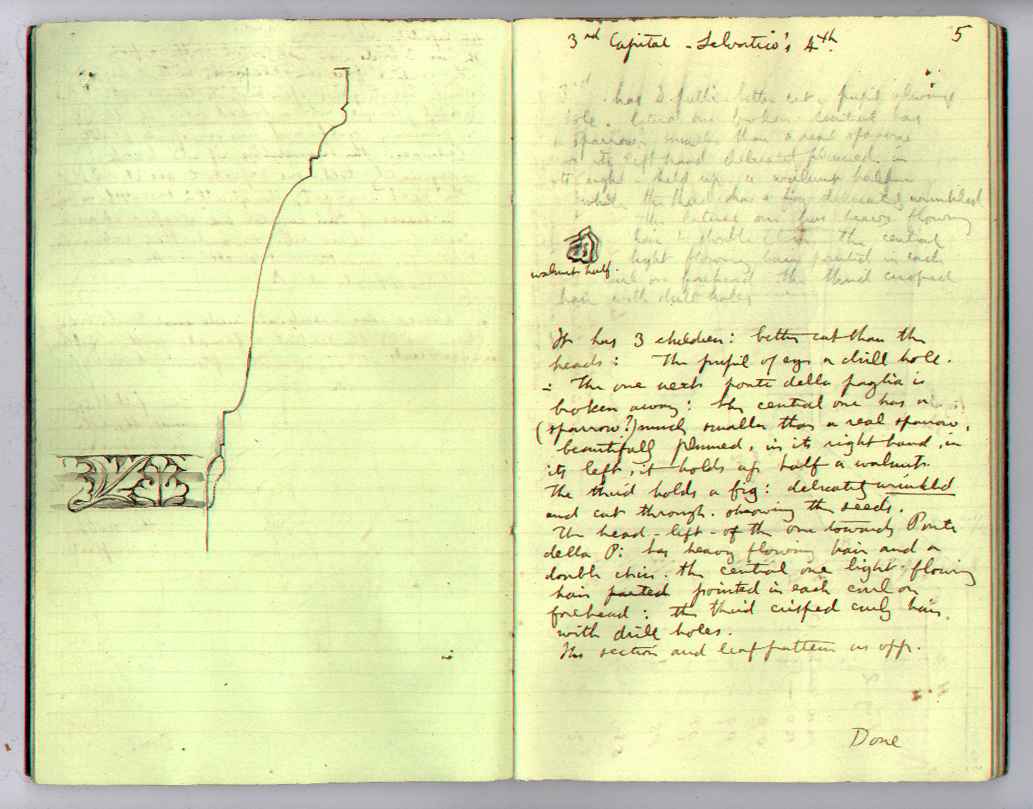 3rd Capital - Selvatico's 4th.
5
3rd. has 3 putti better cut. pupil of eyes
hole. lateral one broken. central has
sparrow. smaller than a real sparrow
its left hand delicately plumed. in
its right - held up a walnut half
while the third has a fig delicately wrinkled
the lateral one has heavy flowing
hair & double chin. the central
light flowing hair pointed in each
curl on forehead the third crisped
hair with drill holes
walnut half.
It has 3 children: better cut than the
heads: The pupil of eyes a drill hole.
The one next ponte della paglia is
broken away: the central one has a
(sparrow?) much smaller than a real sparrow,
beautifully plumed, in its right hand, in
its left, it holds up half a walnut.
The third holds a fig: delicately wrinkled
and cut through. showing the seeds.
The head - left - of the one towards Ponte
della P: has heavy flowing hair and a
double chin. the central one light flowing
hair parted pointed in each curl on
forehead: the third crisped curly hair.
with drill holes.
The section and leaf pattern as opp.
Done